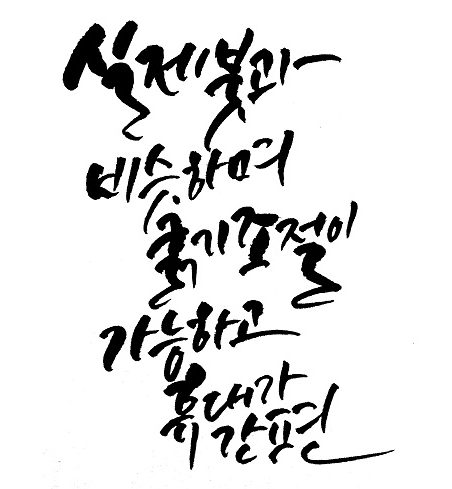 실제붓과
비슷하며
굵기조절이
가능하고
휴대가
간편